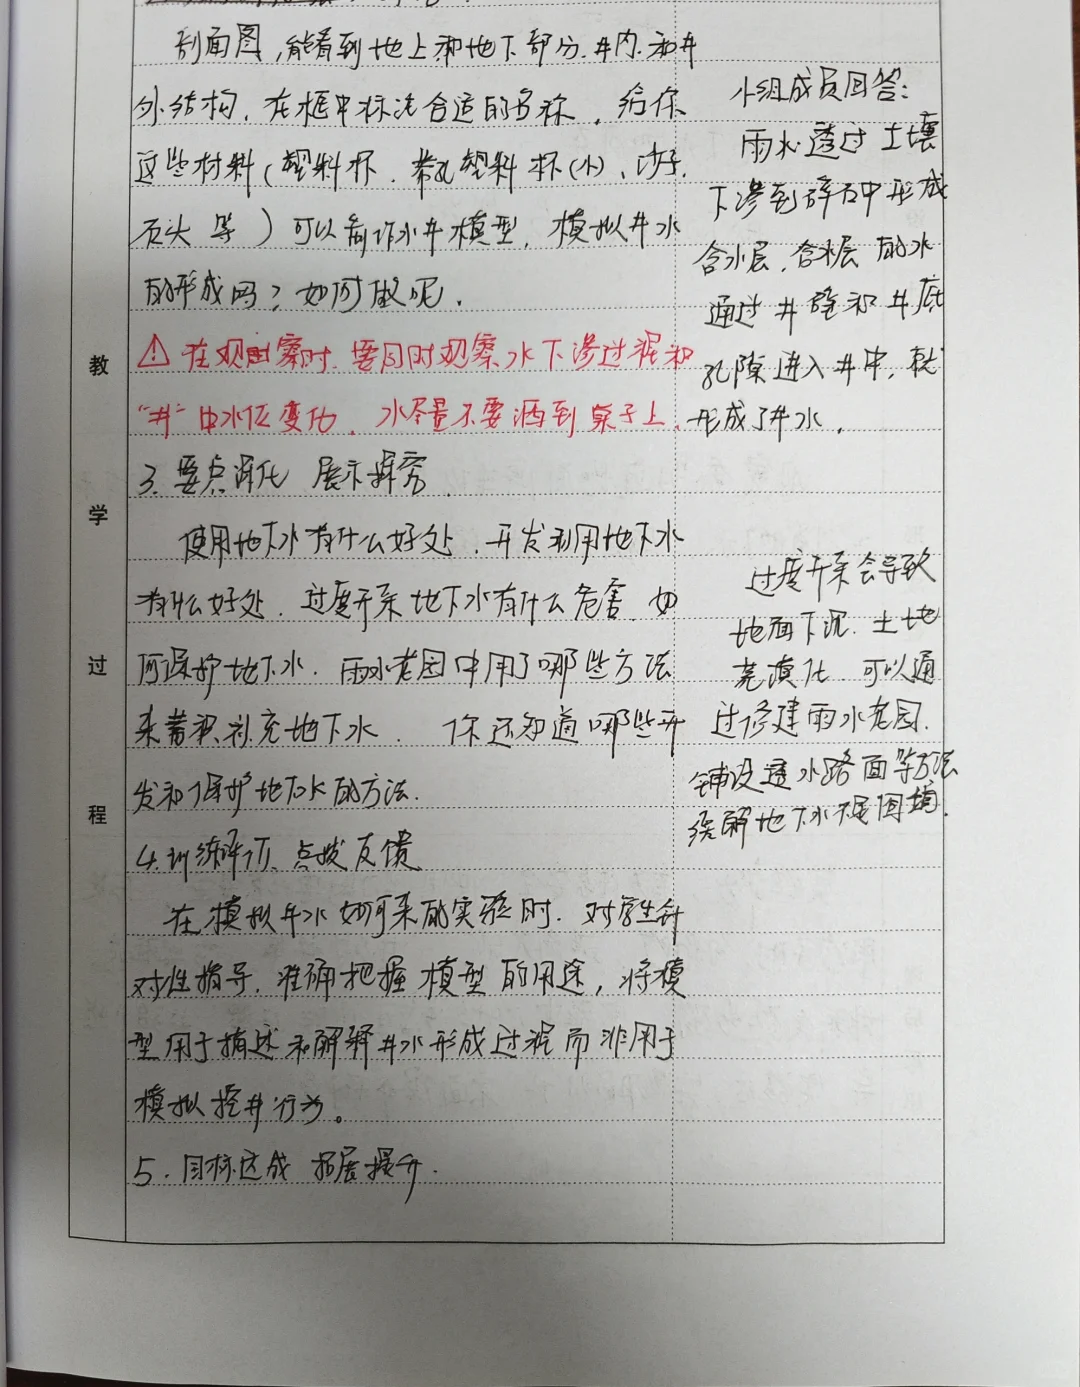 剖面图,能看到地上和地下部分.井内.和井
外结构,在框中标注合适的名称.给你
这些材料(塑料杯.带孔塑料杯(小)、沙子.
石头等)可以制作水井模型,模拟井水
的形成吗?如何做呢.
⚠在观察时,要同时观察水下渗过程和
"井"中水位变化.水尽量不要洒到桌子上.
3.要点深化 展示探究.
使用地下水有什么好处.开发利用地下水
有什么好处.过度开采地下水有什么危害.如
何保护地下水.雨水花园中用了哪些方法
来蓄积补充地下水.你还知道哪些开
发和保护地下水的方法.
4.训练评价、点拨反馈
在模拟井水如何来的实验时.对学生针
对性指导.准确把握模型的用途,将模
型用于描述和解释井水形成过程而非用于
模拟挖井行为。
5.目标达成 拓展提升.
小组成员回答:
雨水透过土壤
下渗到碎石中形成
含水层.含水层的水
通过井壁和井底
孔隙进入井中,就
形成了井水.
过度开采会导致
地面下沉.土地
荒漠化.可以通
过修建雨水花园.
铺设透水路面等方法
缓解地下水不足困境.
教
学
过
程